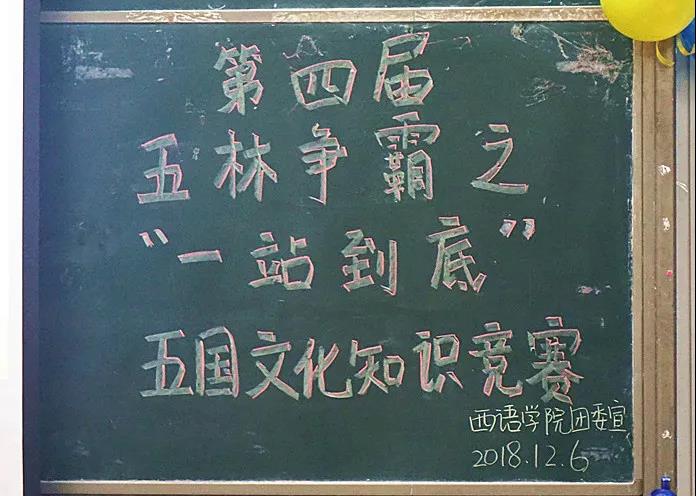 第四届
五林争霸之
“一站到底”
五国文化知识竞赛
西语学院团委宣
2018.12.6